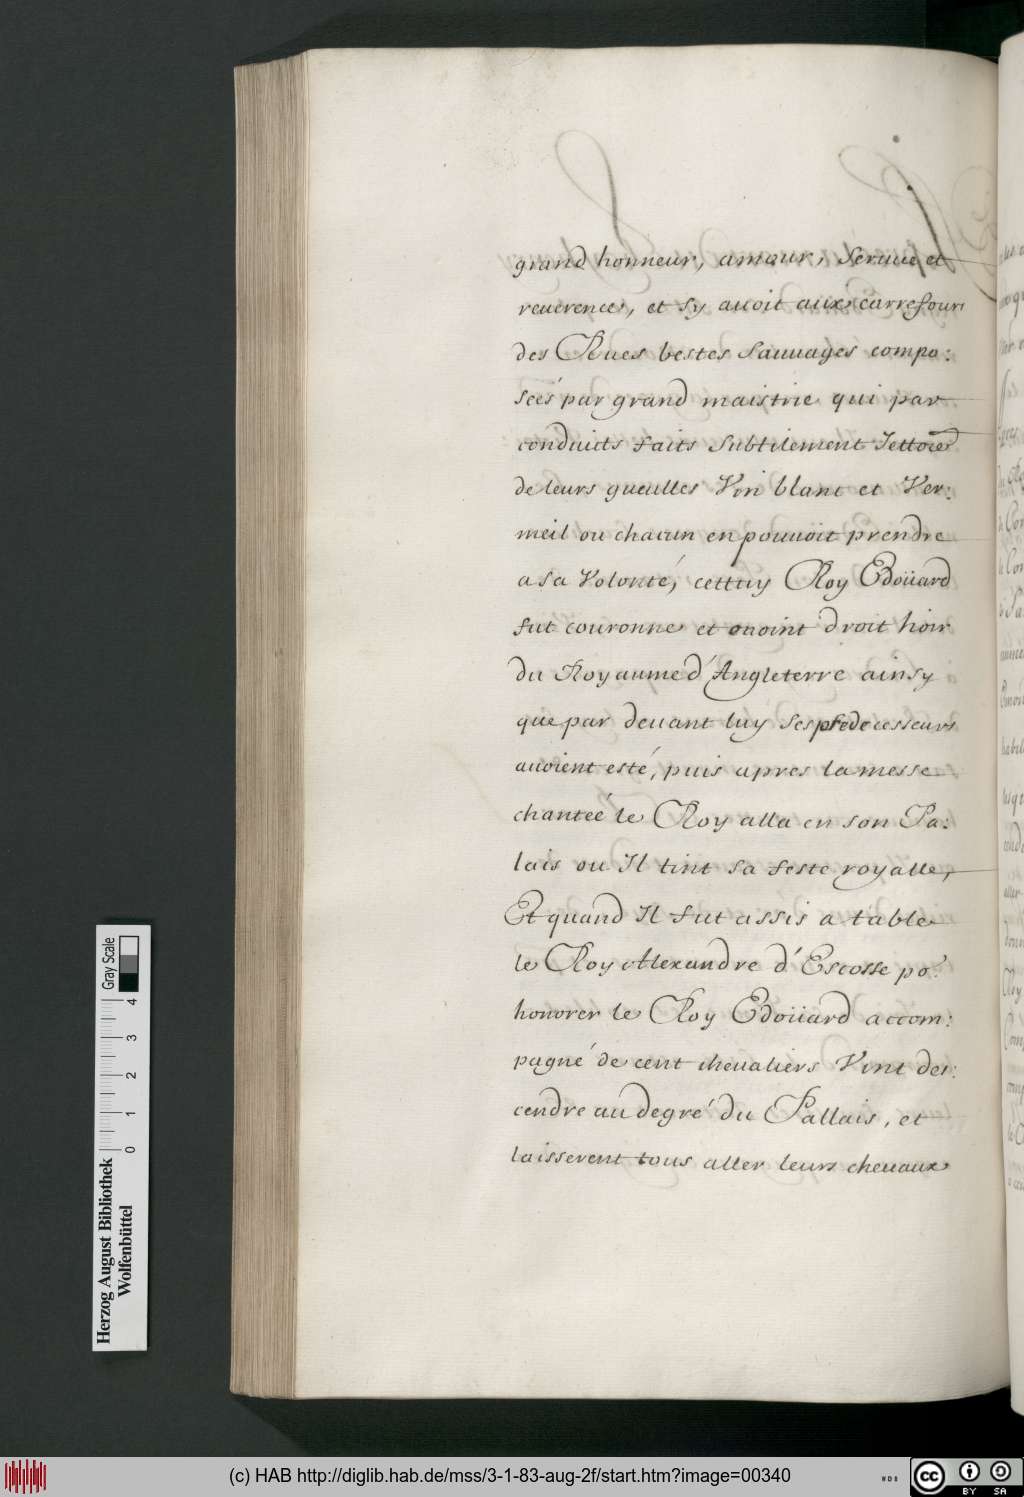 grand honneur, amour, Seruice et
reuerence, et sy auoit aux carrefours
des Rues bestes Sauuages compo:
seés par grand maistrie qui par
conduicts faits Subtilement Iettoiẽt
de leurs gueulles Vin blanc et Ver:
meil ou chacun en pouuoit prendre
a sa Volonté, cettuy Roy Edoüard
fut couronne et enoint droit hoir
du Royaume d'Angleterre ainsy
que par deuant luy Ses predecesseurs
auoient esté, puis apres la messe
chanteé le Roy alla en son Pa:
lais ou Il tint sa feste royalle,
Et quand Il fut assis a table
le Roy Alexandre d'Escosse po.r
honorer le Roy Edoüard accom:
pagné de cent cheualiers Vint des:
cendre au degré du Pallais, et
laisserent tous aller leurs cheuaux
Gray Scale
0 1 2 3 4
Herzog August Bibliothek
Wolfenbüttel
(c) HAB http://diglib.hab.de/mss/3-1-83-aug-2f/start.htm?image=00340
WDB
cc
BY SA